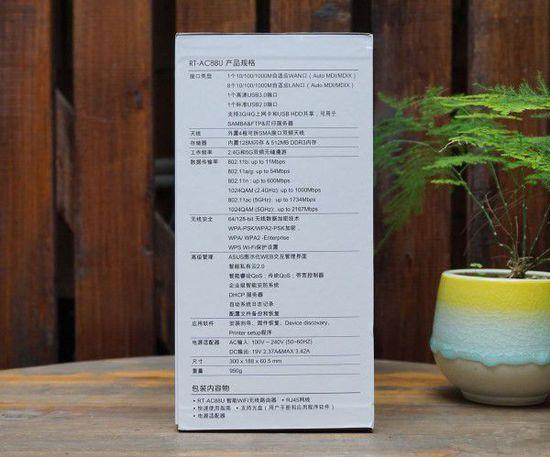 RT-AC88U 产品规格
接口类型 1个10/100/1000M自适应WAN口（Auto MDI/MDIX）
8个10/100/1000M自适应LAN口（Auto MDI/MDIX）
1个高速USB3.0接口
1个标准USB2.0接口
支持3G/4G上网卡和USB HDD共享，可用于
SAMBA&FTP&打印服务器
天线 外置4根可拆SMA接口双频天线
存储器 内置128M闪存 & 512MB DDR3内存
工作频率 2.4G和5G双频无缝漫游
数据传输率 802.11b: up to 11Mbps
802.11a/g: up to 54Mbps
802.11n : up to 600Mbps
1024QAM (2.4GHz): up to 1000Mbps
802.11ac (5GHz): up to 1734Mbps
1024QAM (5GHz): up to 2167Mbps
无线安全 64/128-bit 无线数据加密技术
WPA-PSK/WPA2-PSK加密，
WPA/ WPA2 -Enterprise
WPS Wi-Fi保护设置
高级管理 ASUS图示化WEB交互管理界面
智能私有云2.0
智能睿锐QoS；传统QoS：带宽控制器
企业级智能安防系统
DHCP 服务器
自动系统日志记录
配置文件备份和恢复
应用软件 安装到导，固件恢复，Device discovery,
Printer setup程序
电源适配 AC输入: 100V ~ 240V (50~60HZ)
DC输出: 19V 2.37A&MAX 3.42A
尺寸 300 x 188 x 60.5 mm
重量 950g
包装内容物
• RT-AC88U 智能WiFi无线路由器 • RJ45网线
• 快速使用指南 • 支持光盘（用户手册和应用程序软件）
• 电源适配器